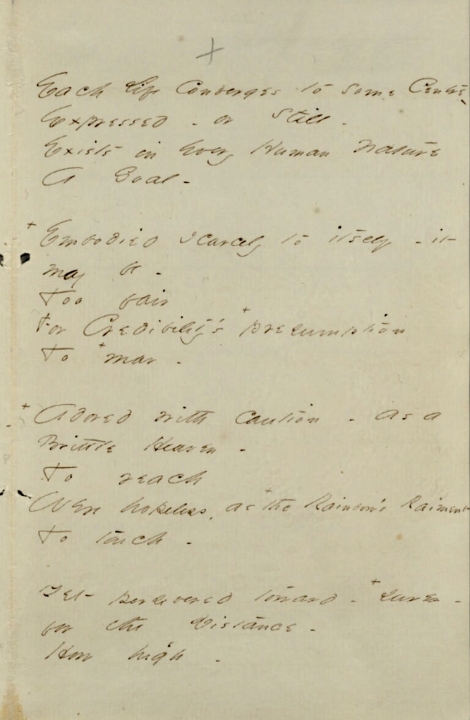 +
Each Life Converges to some Centre -
Expressed - or Still -
Exists in Every Human Nature
A Goal -
+ Embodied scarcely to itself - it
may be -
Too fair
For Credibility's + presumption
To + mar -
+ Adored with Caution - as a
Brittle Heaven -
To reach
Were hopeless, as + the Rainbow's Raiment
To touch -
Yet persevered toward - + surer -
for the Distance -
How high -